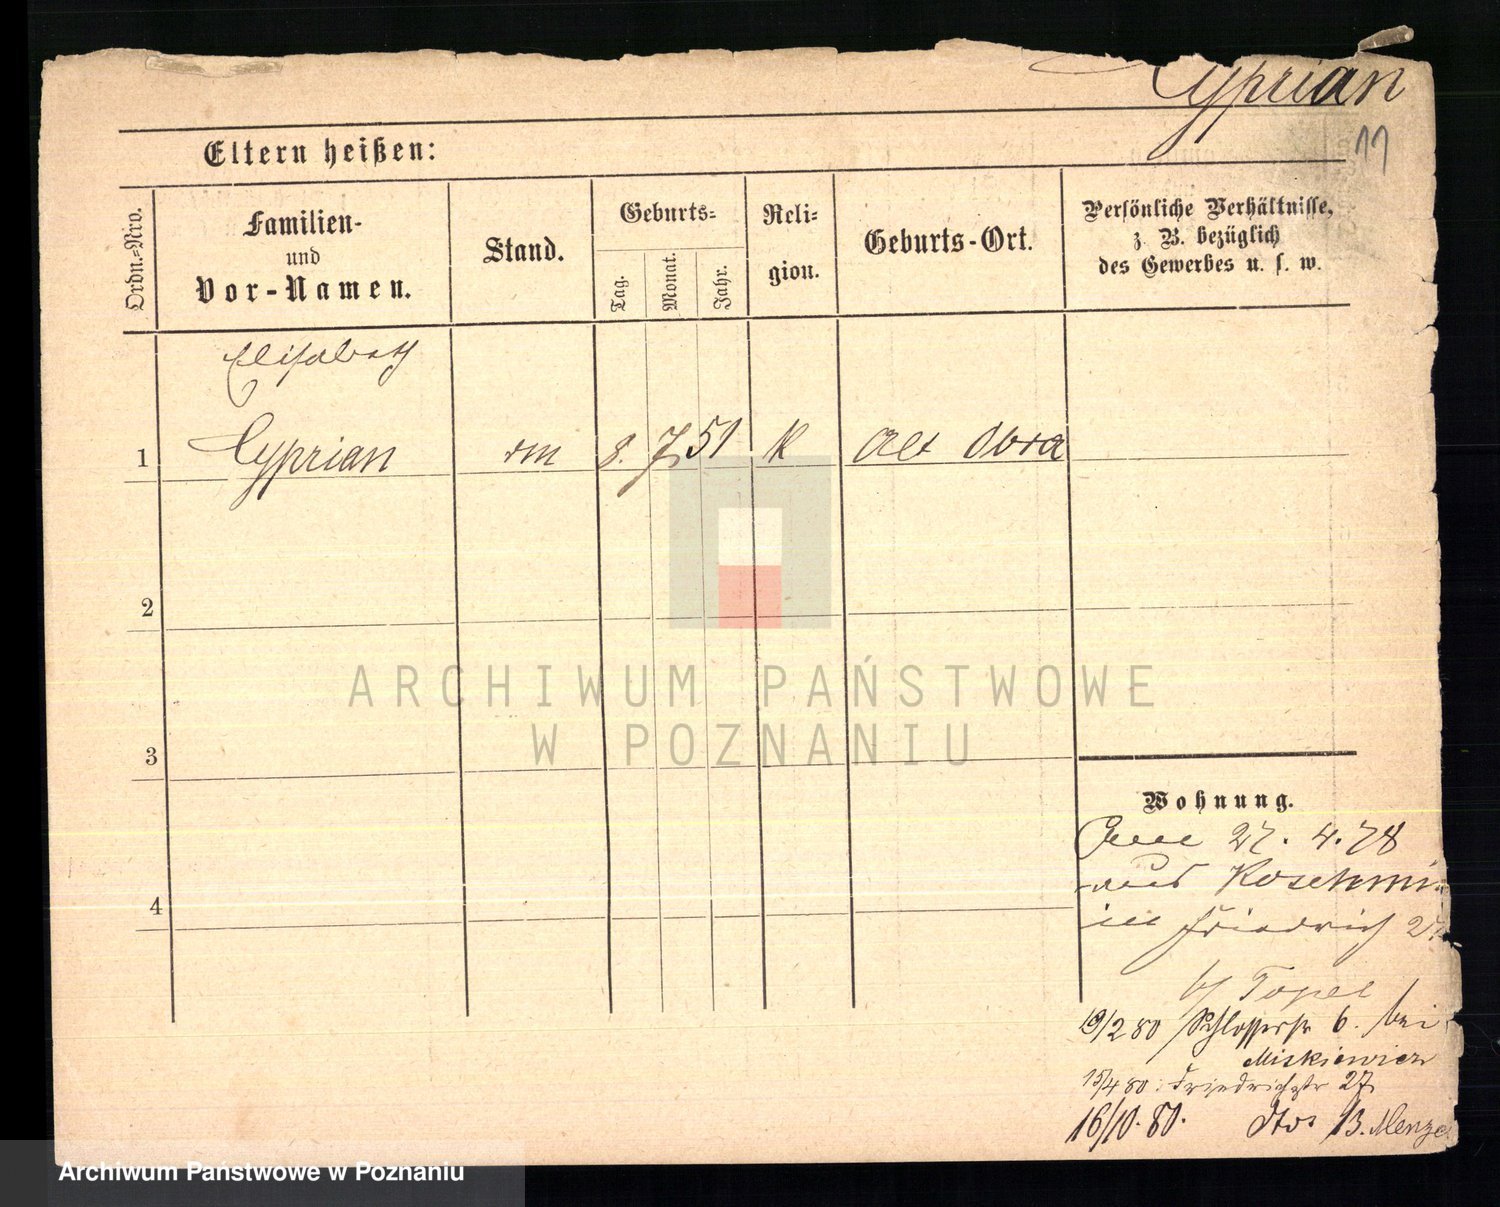 Cyprian
11
Eltern heißen:
Ordn.-Nro.
Familien-
und
Vor-Namen.
Stand.
Geburts-
Tag.
Monat.
Jahr.
Reli-
gion.
Geburts-Ort.
Persönliche Verhältnisse,
z. B. bezüglich
des Gewerbes u. s. w.
Elisabeth
1 Cyprian 8. 7. 51 K Alt Obra
2
3
4
Wohnung.
27. 4. 78
aus Koschmi
in Friedrich 27
b/ Topel
19/2 80 Schlosserstr 6. bei
Miskiewicz
15/4 80: Friedrichstr 27.
16/10. 80. Menzel
ARCHIWUM PAŃSTWOWE
W POZNANIU
Archiwum Państwowe w Poznaniu